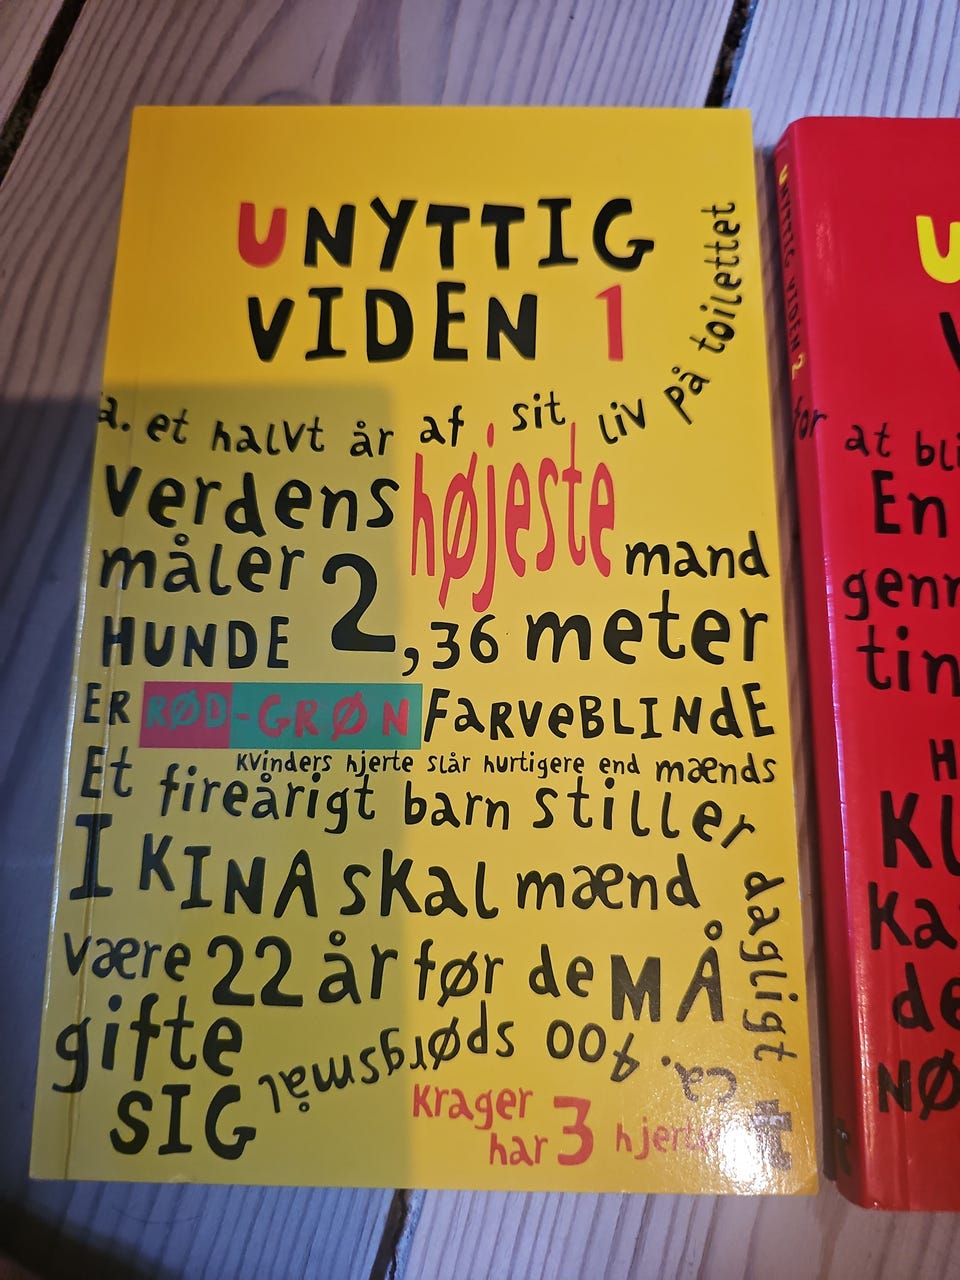 UNYTTIG
VIDEN 1
a. et halvt år af sit liv på toilettet
verdens højeste mand
måler 2,36 meter
HUNDE
ER RØD-GRØN FARVEBLINDE
Kvinders hjerte slår hurtigere end mænds
Et fireårigt barn stiller dagligt ca. 400 spørgsmål
I KINA skal mænd
være 22 år før de MÅ
gifte
SIG
Krager
har 3
UNYTTIG VIDEN 2
U
for
at bli
En
genn
tin
H
KL
Ka
de
NØ